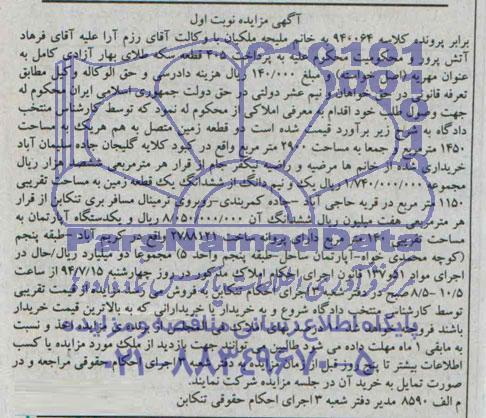 آگهی مزایده نوبت اول
برابر پرونده کلاسه ۹۴۰۰۶۴ به خانم ملیحه ملکیان با وکالت آقای رزم آرا علیه آقای فرهاد
آتش پرور و محکومیت محکوم علیه به پرداخت ۲۰۵ قطعه سکه طلای بهار آزادی کامل به
عنوان مهریه (اصل خواسته) و مبلغ ۱۴۰/۰۰۰ ریال هزینه دادرسی و حق الوکاله وکیل مطابق
تعرفه قانونی در حق خواهان و نیم عشر دولتی در حق دولت جمهوری اسلامی ایران محکوم له
جهت وصول طلب خود اقدام به معرفی املاکی از محکوم له نمود که توسط کارشناس منتخب
دادگاه به شرح زیر برآورد قیمت شده است دو قطعه زمین متصل به هم هریک به مساحت
۱۴۵۰ متر مربع جمعا به مساحت ۲۹۰۰ متر مربع واقع در کبود کلایه گلیجان جاده سلیمان آباد
خریداری شده از خانم ها مرضیه و راضیه نیکفر خام از قرار هر مترمربعی ششصد هزار ریال
مجموعا ۱/۷۴۰/۰۰۰/۰۰۰ ریال یک و نیم دانگ از ششدانگ یک قطعه زمین به مساحت تقریبی
۱۱۵۰ متر مربع در قریه حاجی آباد –جاده کمربندی–روبروی ترمینال مسافر بری تنکابن از قرار
هر مترمربعی هفت میلیون ریال ششدانگ آن ۸/۰۵۰/۰۰۰/۰۰۰ ریال و یکدستگاه آپارتمان به
مساحت تقریبی متر مربع دارای پروانه ساخت ۲۷۸۸۱۲۱ واقع در کریم آباد–طبقه پنجم
(کوچه محمدی خواه–آپارتمان ساحل–طبقه پنجم واحد ۵) مجموعا دو میلیارد ریال/حال در
اجرای مواد قانون اجرای احکام املاک مذکور در روز چهارشنبه ۹۴/۷/۱۵ از ساعت
۸/۵–۱۰/۵ صبح در دفتر شعبه ۳ اجرای احکام تنکابن به فروش می رسد مزایده از قیمت تقریبی
توسط کارشناس منتخب دادگاه شروع و به خریدار یا خریدارانی که به بالاترین قیمت خریدار
باشند فروخته
به مابقی ۱ ماه مهلت داده می شود طالبین می توانند جهت بازدید از ملک مورد مزایده یا کسب
اطلاعات بیشتر تا پنج روز قبل از زمان مزایده به دفتر شعبه ۳ اجرای احکام حقوقی مراجعه و در
صورت تمایل به خرید آن در جلسه مزایده شرکت نمایند.
م الف ۸۵۹۰ مدیر دفتر شعبه ۳ اجرای احکام حقوقی تنکابن
پایگاه اطلاع رسانی مناقصه و مزایده
۰۲۱-۸۸۳۴۹۶۷۰-۵